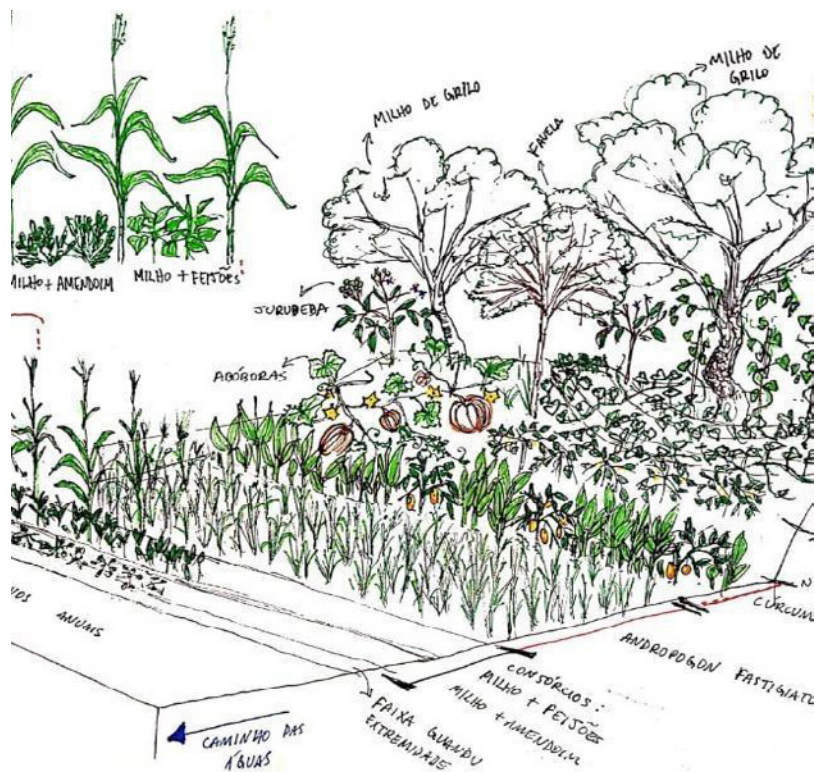 MILHO + AMENDOIM
MILHO + FEIJÕES
MILHO DE GRILO
FAVELA
MILHO DE
GRILO
JURUBEBA
ABÓBORAS
ANUAIS
CAMINHO DAS
ÁGUAS
FAIXA GUANDU
EXTREMIDADE
CONSÓRCIOS:
MILHO + FEIJÕES
MILHO + AMENDOIM
ANDROPOGON FASTIGIATU
N
CÚRCUM